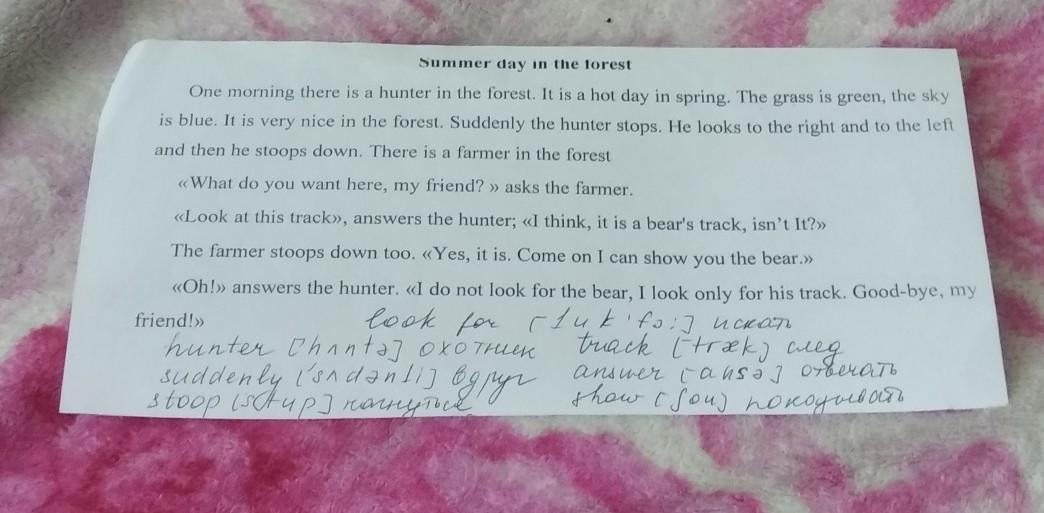 Summer day in the forest
One morning there is a hunter in the forest. It is a hot day in spring. The grass is green, the sky
is blue. It is very nice in the forest. Suddenly the hunter stops. He looks to the right and to the left
and then he stoops down. There is a farmer in the forest
«What do you want here, my friend? » asks the farmer.
«Look at this track», answers the hunter; «I think, it is a bear's track, isn't It?»
The farmer stoops down too. «Yes, it is. Come on I can show you the bear.»
«Oh!» answers the hunter. «I do not look for the bear, I look only for his track. Good-bye, my
friend!»
look for [luk 'fɔ:] искать
hunter [hʌntə] охотник track [træk] след
suddenly ['sʌdənli] вдруг answer [ansə] отвечать
stoop [stup] show [ʃou]